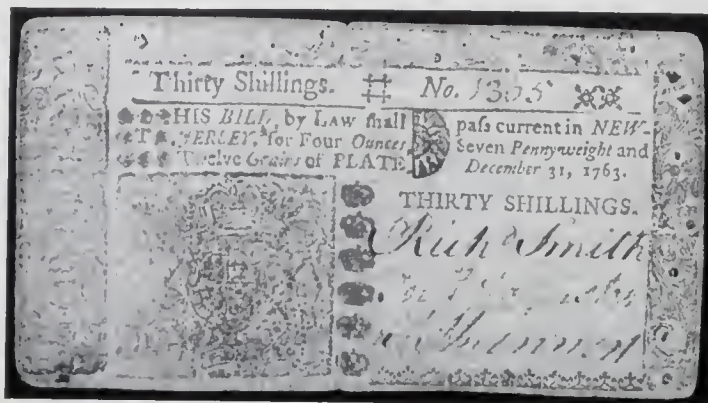 Thirty Shillings. No.
THIS BILL, by LAW ſhall paſs current in NEW-
JERSEY, for Four Ounces, Seven Pennyweight and
Twelve Grains of PLATE December 31, 1763.
THIRTY SHILLINGS.
Richd Smith